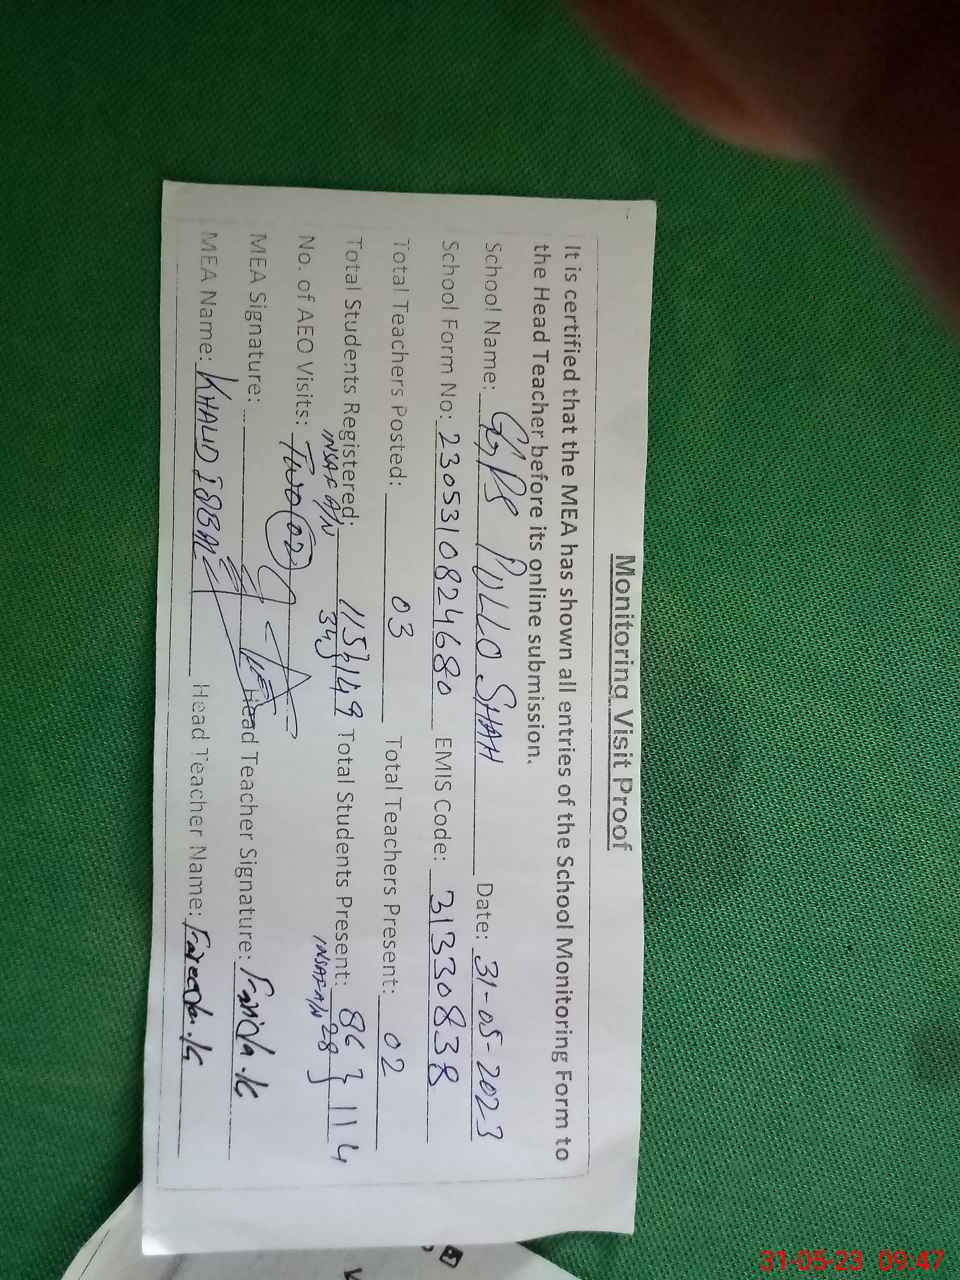 Monitoring Visit Proof
It is certified that the MEA has shown all entries of the School Monitoring Form to
the Head Teacher before its online submission.
School Name: GGPS PULLO SHAH Date: 31-05-2023
School Form No: 2305310824680 EMIS Code: 31330838
Total Teachers Posted: 03 Total Teachers Present: 02
Total Students Registered: 115 } 149 Total Students Present: 86 } 114
INSAF A/N 34 INSAF A/N 28
No. of AEO Visits: Two (02)
MEA Signature: Head Teacher Signature: Farida.K
MEA Name: KHALID IQBAL Head Teacher Name: Fareeda.K
31-05-23 09:47